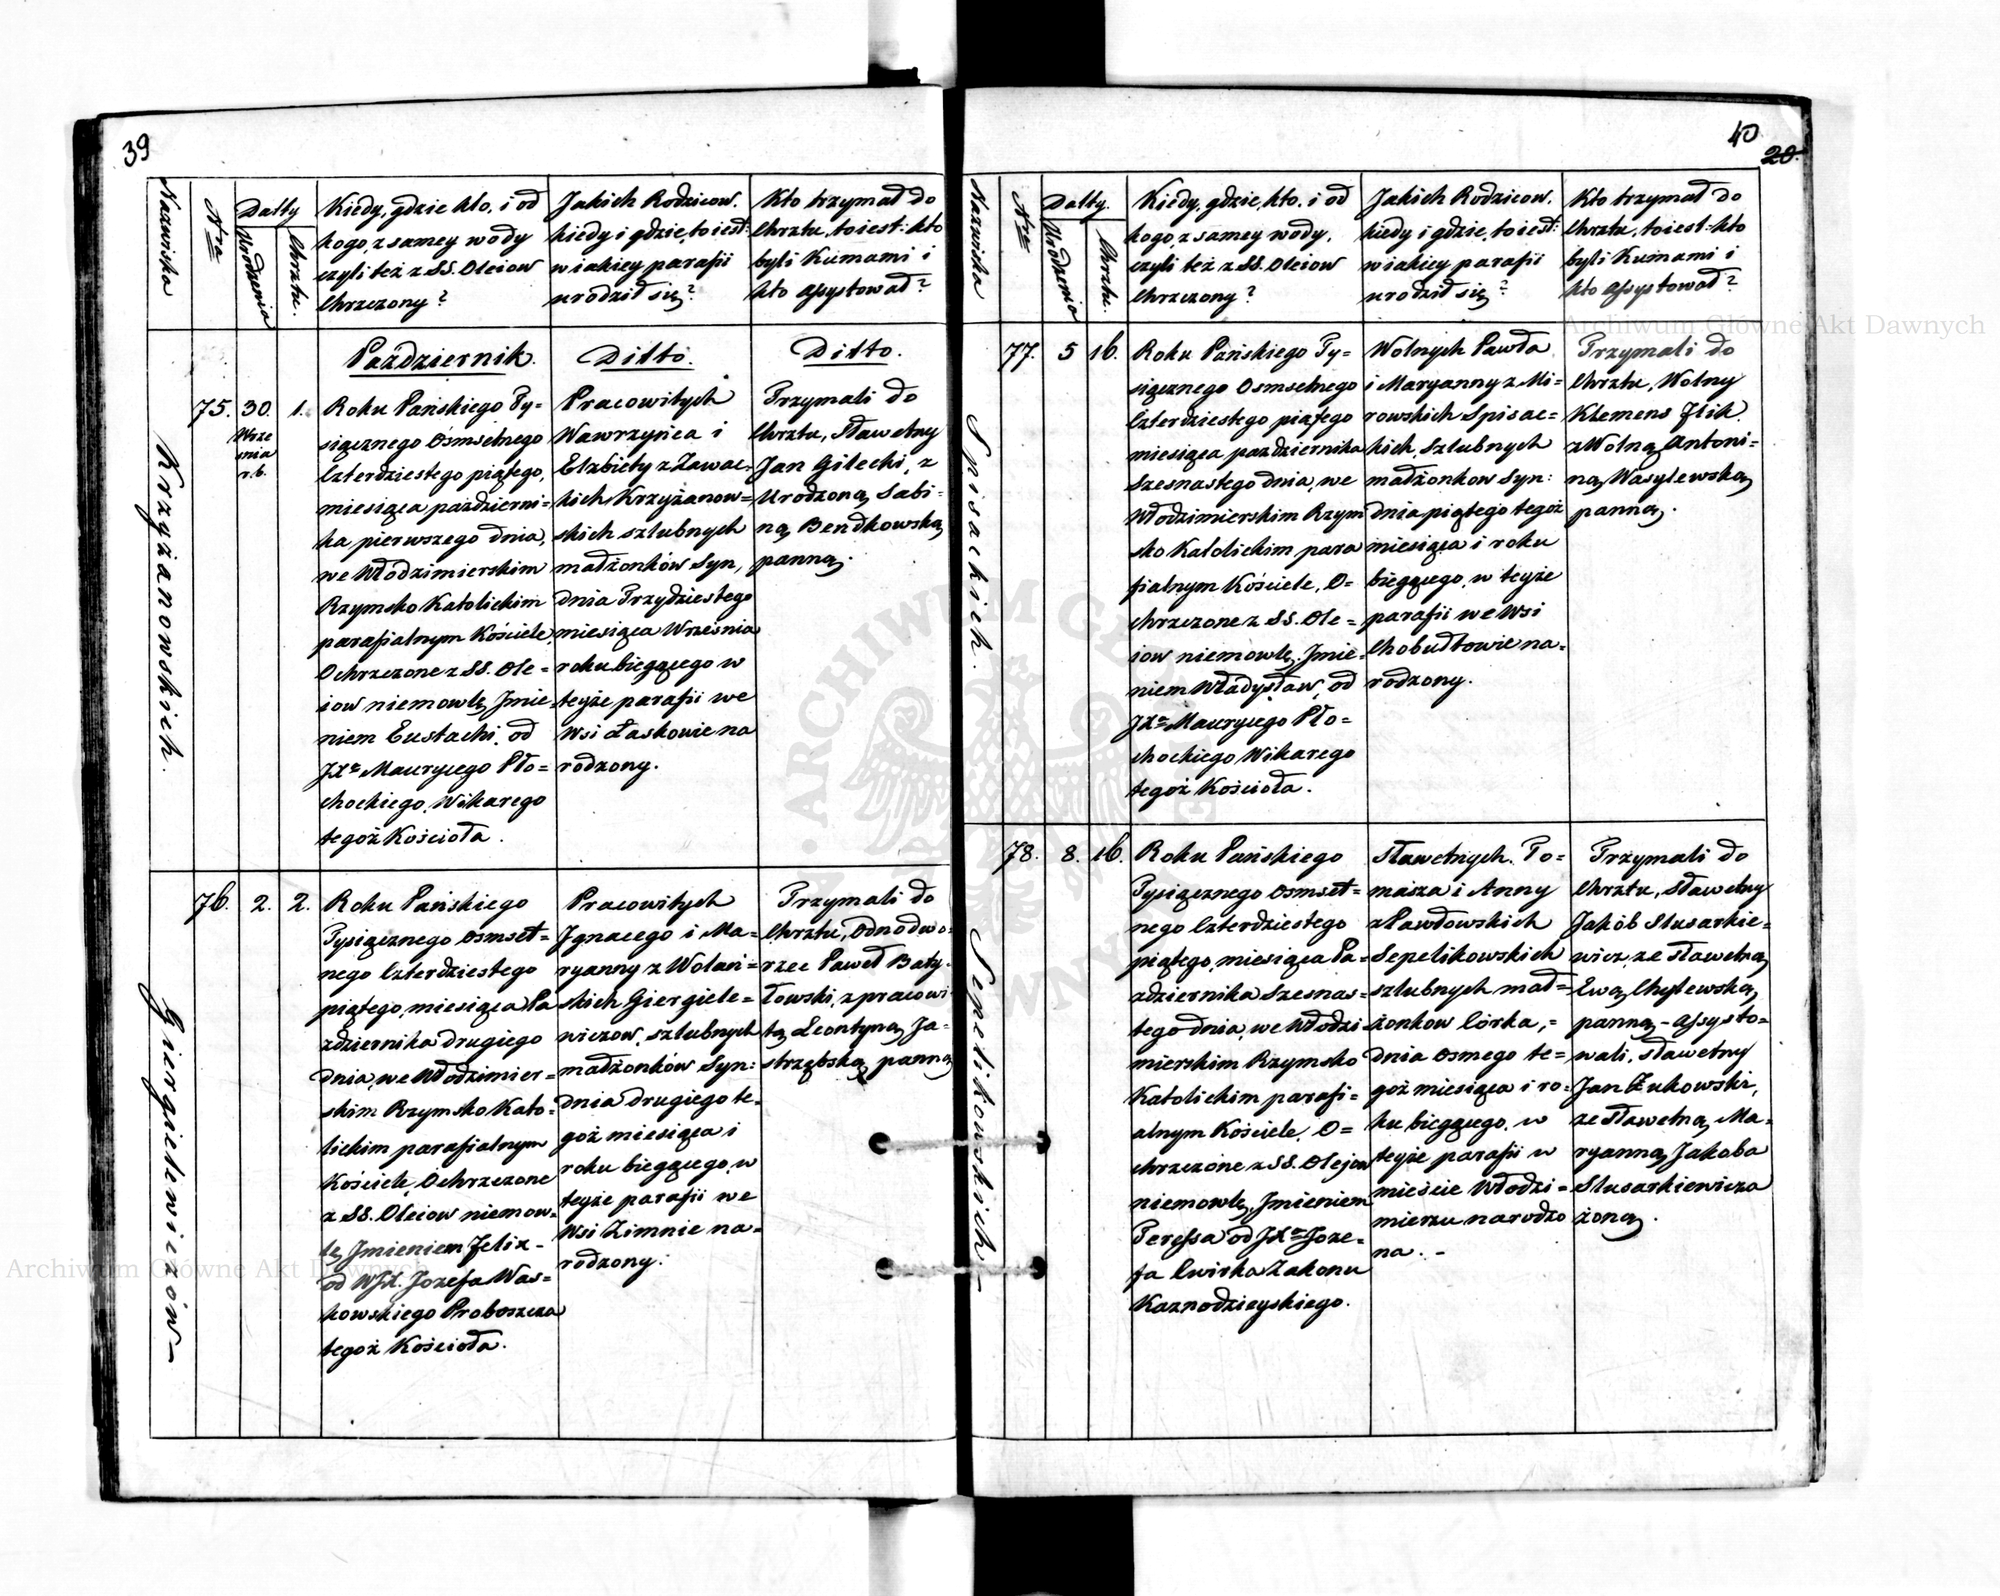 39
Nazwiska
Nra
Datty
Urodzenia
Chrztu.
Kiedy, gdzie kto, i od
kogo z samey wody
czyli też z SS. Oleiow
Chrzczony?
Jakich Rodzicow,
kiedy i gdzie, to iest:
w iakiey parafii
urodził się?
Kto trzymał do
Chrztu, to iest: kto
byli Kumami i
kto assystował?
Październik.
Ditto.
Ditto.
Krzyżanowskich.
75.
30.
Wrze
śnia
r.b.
1.
Roku Pańskiego Ty=
siącznego Osmsetnego
Czterdziestego piątego,
miesiąca październi=
ka pierwszego dnia,
we Włodzimierskim
Rzymsko Katolickim
parafialnym Kościele,
Ochrzczone z SS. Ole=
iow niemowlę, Jmie=
niem Eustachi, od
JXa Maurycego Pło=
chockiego, Wikarego
tegoż Kościoła.
Pracowitych
Wawrzyńca i
Elżbiety z Zawac=
kich Krzyżanow=
skich szlubnych
małżonków Syn,
dnia Trzydziestego
miesiąca Września
roku bieżącego w
teyże parafii we
Wsi Łaskowie na
rodzony.
Trzymali do
Chrztu, Sławetny
Jan Gilecki, z
Urodzoną Sabi=
ną Bendkowską
panną.
Giergielewiczów
76.
2.
2.
Roku Pańskiego
Tysiącznego Osmset=
nego Czterdziestego
piątego, miesiąca Pa
ździernika drugiego
dnia, we Włodzimier=
skim Rzymsko Kato=
lickim parafialnym
Kościele, Ochrzczone
z SS. Oleiow niemow=
lę, Jmieniem Felix=
od WJX. Jozefa Was=
kowskiego Proboszcza
tegoż Kościoła.
Pracowitych
Jgnacego i Ma=
ryanny z Wolań=
skich Giergiele=
wiczow, szlubnych
małżonków Syn:
dnia drugiego te=
goż miesiąca i
roku bieżącego, w
teyże parafii we
Wsi Zimnie na=
rodzony.
Trzymali do
Chrztu, Odnodwo=
rzec Paweł Baty=
łowski, z pracowi
tą Leontyną Ja=
strzębską panną
40
20.
Nazwiska
Nra
Datty.
Urodzenia
Chrztu.
Kiedy, gdzie, kto, i od
kogo, z samey wody,
czyli też z SS. Oleiow
Chrzczony?
Jakich Rodzicow,
kiedy i gdzie, to iest:
w iakiey parafii
urodził się?
Kto trzymał do
Chrztu, to iest: kto
byli Kumami i
kto assystował?
Spisackich.
77.
5
16.
Roku Pańskiego Ty=
siącznego Osmsetnego
Czterdziestego piątego
miesiąca października
Szesnastego dnia, we
Włodzimierskim Rzym
sko Katolickim para
fialnym Kościele, O=
chrzczone z SS. Ole=
iow niemowlę, Jmie=
niem Władysław, od
JXa Maurycego Pło=
chockiego Wikarego
tegoż Kościoła.
Wolnych Pawła
i Maryanny z Mi=
rowskich Spisac=
kich, Szlubnych
małżonkow Syn:
dnia piątego tegoż
miesiąca i roku
bieżącego, w teyże
parafii we Wsi
Chobułtowie na=
rodzony.
Trzymali do
Chrztu, Wolny
Klemens Flik
z Wolną Antoni=
ną Wasylewską
panną.
Sepelikowskich
78.
8.
16.
Roku Pańskiego
Tysiącznego Osmset=
nego Czterdziestego
piątego, miesiąca Pa=
ździernika Szesnas=
tego dnia, we Włodzi
mierskim Rzymsko
Katolickim parafi=
alnym Kościele, O=
chrzczone z SS. Olejow
niemowlę, Jmieniem
Teressa od JXa Joze=
fa Cwirka Zakonu
Kaznodzieyskiego.
Sławetnych To=
masza i Anny
z Pawłowskich
Sepelikowskich
szlubnych mał=
żonkow Córka,=
dnia osmego te=
goż miesiąca i ro=
ku bieżącego, w
teyże parafii w
mieście Włodzi=
mierzu narodzo
na. -
Trzymali do
Chrztu, Sławetny
Jakób Slusarkie=
wicz, ze Sławetną
Ewą Chylewską
panną - Assysto=
wali, Sławetny
Jan Żukowski,
ze Sławetną Ma=
ryanną Jakoba
Slusarkiewicza
żoną.
Archiwum Główne Akt Dawnych
Archiwum Główne Akt Dawnych